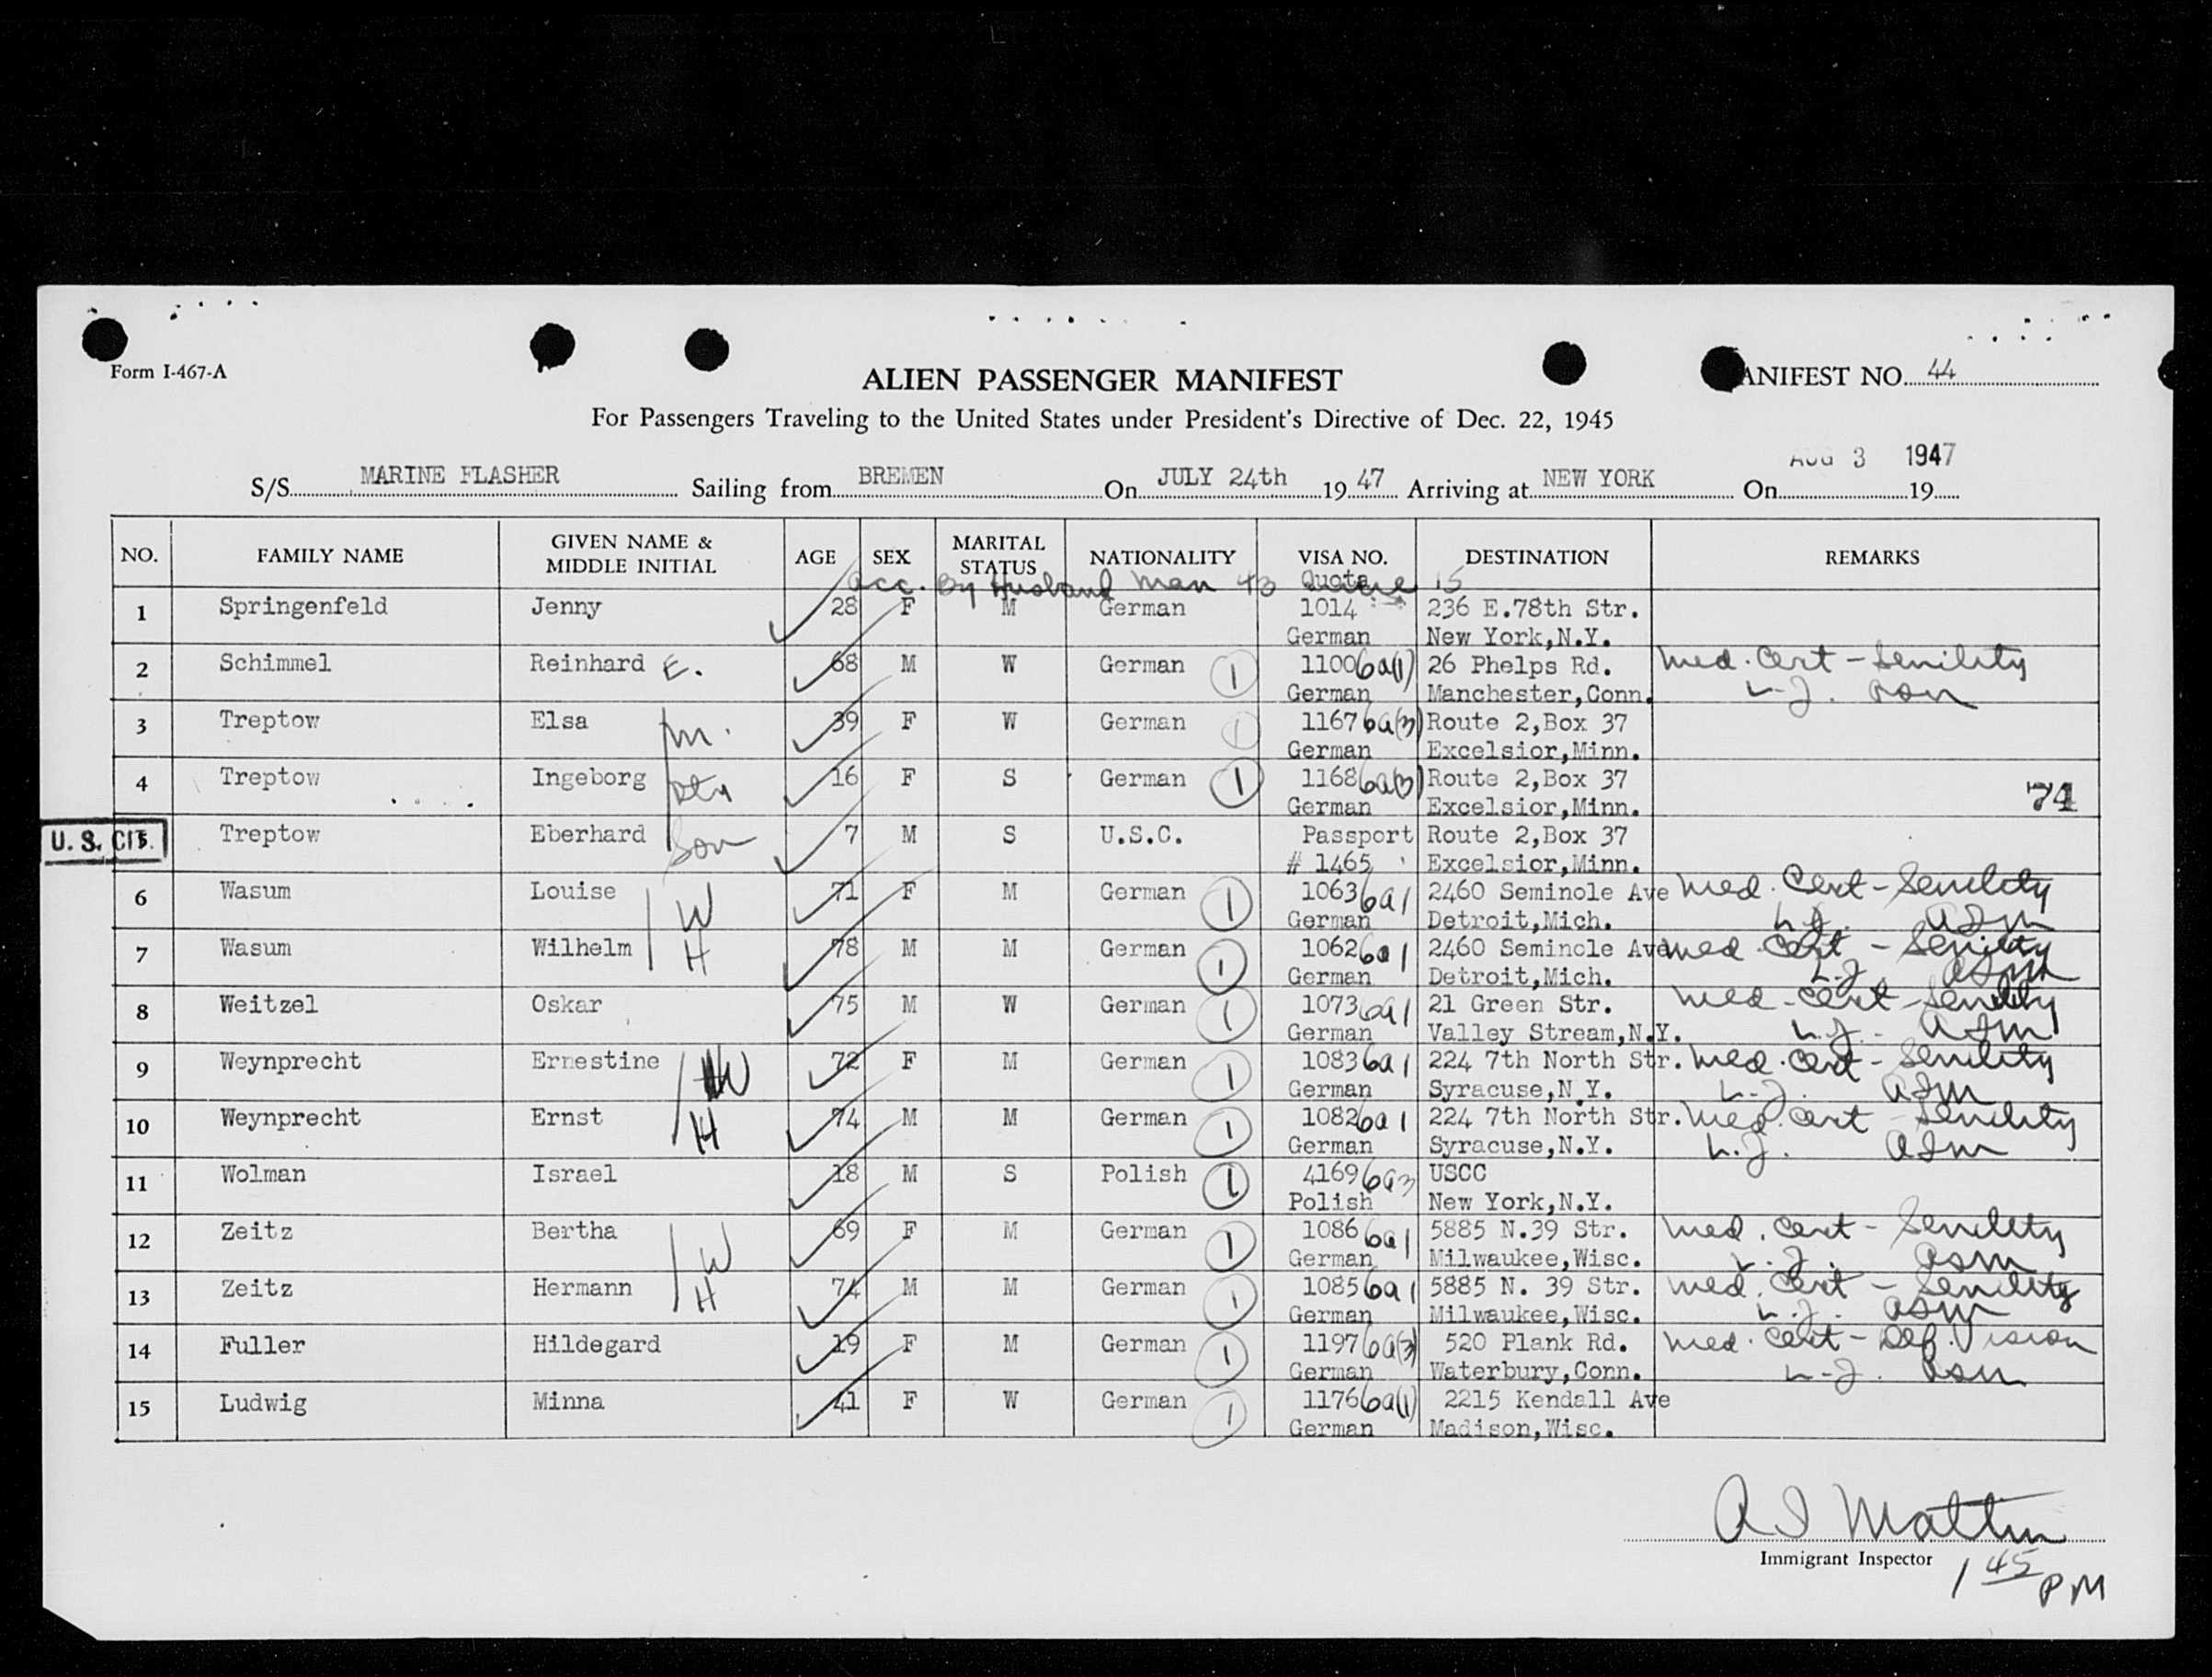 Form I-467-A
ALIEN PASSENGER MANIFEST
ANIFEST NO. 44
For Passengers Traveling to the United States under President's Directive of Dec. 22, 1945
S/S MARINE FLASHER Sailing from BREMEN On JULY 24th 19 47 Arriving at NEW YORK On AUG 3 1947 19
NO. FAMILY NAME GIVEN NAME & MIDDLE INITIAL AGE SEX MARITAL STATUS NATIONALITY VISA NO. DESTINATION REMARKS
acc. By Husband Man 43 line 15
Quota
1 Springenfeld Jenny 28 F M German 1014 236 E.78th Str.
German New York,N.Y.
2 Schimmel Reinhard E. 68 M W German 1 1100 6a(1) 26 Phelps Rd. Med. Cert - Senility
German Manchester,Conn. L.J. asm
3 Treptow Elsa m. 39 F W German 1 1167 6a(3) Route 2,Box 37
German Excelsior,Minn.
4 Treptow Ingeborg Dtr 16 F S German 1 1168 6a(3) Route 2,Box 37
German Excelsior,Minn. 74
U.S. CIT.
5 Treptow Eberhard Son 7 M S U.S.C. Passport Route 2,Box 37
# 1465 Excelsior,Minn.
6 Wasum Louise W 71 F M German 1 1063 6a1 2460 Seminole Ave Med. Cert - Senility
German Detroit,Mich. L.J. asm
7 Wasum Wilhelm H 78 M M German 1 1062 6a1 2460 Seminole Ave Med. Cert - Senility
German Detroit,Mich. L.J. asm
8 Weitzel Oskar 75 M W German 1 1073 6a1 21 Green Str. Med. Cert - Senility
German Valley Stream,N.Y. L.J. asm
9 Weynprecht Ernestine W 72 F M German 1 1083 6a1 224 7th North Str. Med. Cert - Senility
German Syracuse,N.Y. L.J. asm
10 Weynprecht Ernst H 74 M M German 1 1082 6a1 224 7th North Str. Med. Cert Senility
German Syracuse,N.Y. L.J. asm
11 Wolman Israel 18 M S Polish 1 4169 6a3 USCC
Polish New York,N.Y.
12 Zeitz Bertha W 69 F M German 1 1086 6a1 5885 N.39 Str. Med. Cert - Senility
German Milwaukee,Wisc. L.J. asm
13 Zeitz Hermann H 74 M M German 1 1085 6a1 5885 N. 39 Str. Med. Cert - Senility
German Milwaukee,Wisc. L.J. asm
14 Fuller Hildegard 19 F M German 1 1197 6a(3) 520 Plank Rd. Med. Cert - Def. Vision
German Waterbury,Conn. L.J. asm
15 Ludwig Minna 41 F W German 1 1176 6a(1) 2215 Kendall Ave
German Madison,Wisc.
Immigrant Inspector
1 45 PM